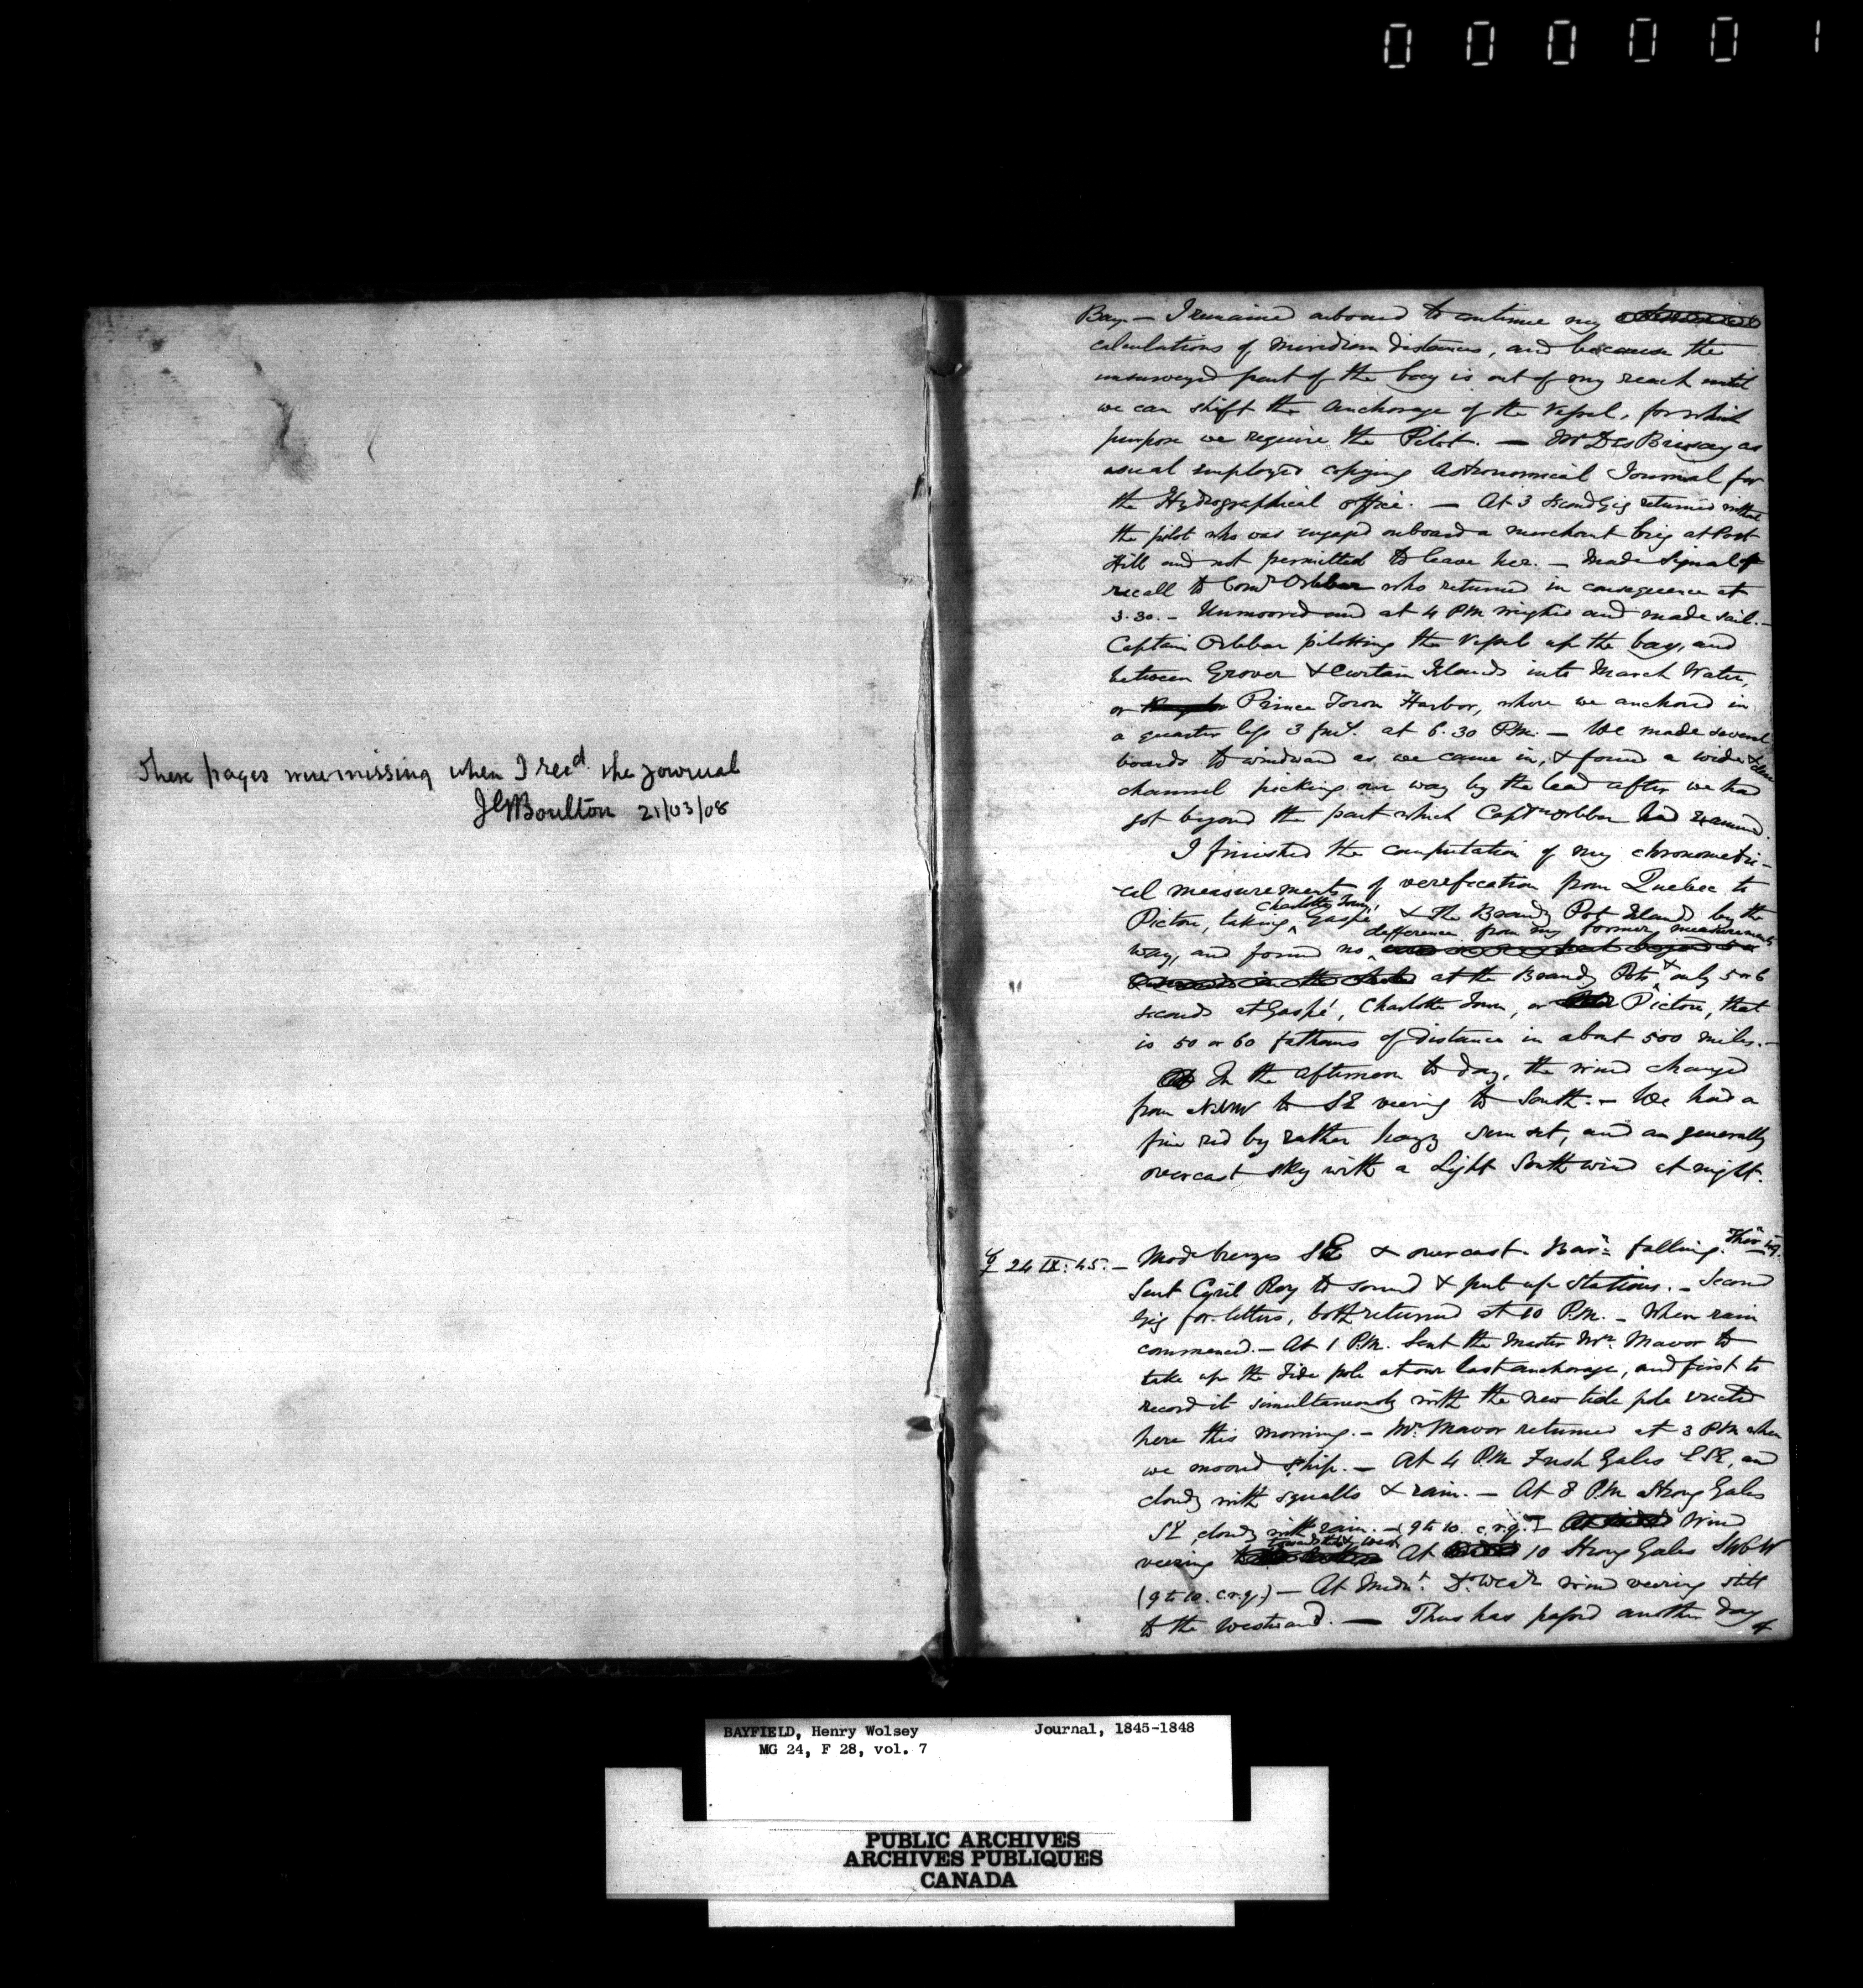 000001
These pages were missing when I recd. the journal
JGBoulton 21/03/08
Bay. — I remained onboard to continue my
calculations of meridian distances, and because the
unsurveyed part of the bay is out of my reach until
we can shift the anchorage of the Vessel, for which
purpose we require the Pilot. — Mr DesBrisay as
usual employed copying Astronomical Journal for
the Hydrographical office. — At 3 second gig returned without
the pilot who was engaged onboard a merchant brig at Port
Hill and not permitted to leave her. — Made signal of
recall to Comr Orlebar who returned in consequence at
3.30. — Unmoored and at 4 PM weighed and made sail. —
Captain Orlebar pilotting the Vessel up the bay, and
between Grover & Curtain Islands into March Water,
or Prince Town Harbor, where we anchored in
a quarter less 3 fms. at 6.30 P.M. — We made several
boards to windward as we came in, & found a wide & clear
channel picking our way by the lead after we had
got beyond the part which Captn Orlebar had examined.
I finished the computation of my chronometri-
-cal measurements of verefication from Quebec to
Pictou, taking Charlotte Town, Gaspé & the Brandy Pot Islands by the
way, and found no difference from my former measurements
at the Brandy Pots & only 5 or 6
seconds at Gaspé, Charlotte Town, or Pictou, that
is 50 or 60 fathoms of distance in about 500 miles. —
In the afternoon to day, the wind changed
from NNW to SE veering to South. — We had a
fine red by rather hazy sun set, and an generally
overcast sky with a light South wind at night.
☿ 24 IX. 45. — Mode breezes SE & overcast. Barr. falling. Ther 49.
Sent Cyril Roy to sound & put up stations. — Second
gig for letters, both returned at 10 P.M. — When rain
commenced. — At 1 P.M. Sent the Master Mr. Mavor to
take up the tide pole at our last anchorage, and first to
record it simultaneously with the new tide pole erected
here this morning. — Mr. Mavor returned at 3 PM when
we moored ship. — At 4 P.M Fresh Gales ESE, and
cloudy with squalls & rain. — At 8 P.M Strong Gales
SE cloudy with rain. — (9 to 10. c.r.q.) — Wind
veering towards the West At 10 Strong Gales SWbW
(9 to 10. c.r.q.) — At Midnt. Do. Wear wind veering still
to the westward. — Thus has passed another day
of
BAYFIELD, Henry Wolsey Journal, 1845-1848
MG 24, F 28, vol. 7
PUBLIC ARCHIVES
ARCHIVES PUBLIQUES
CANADA